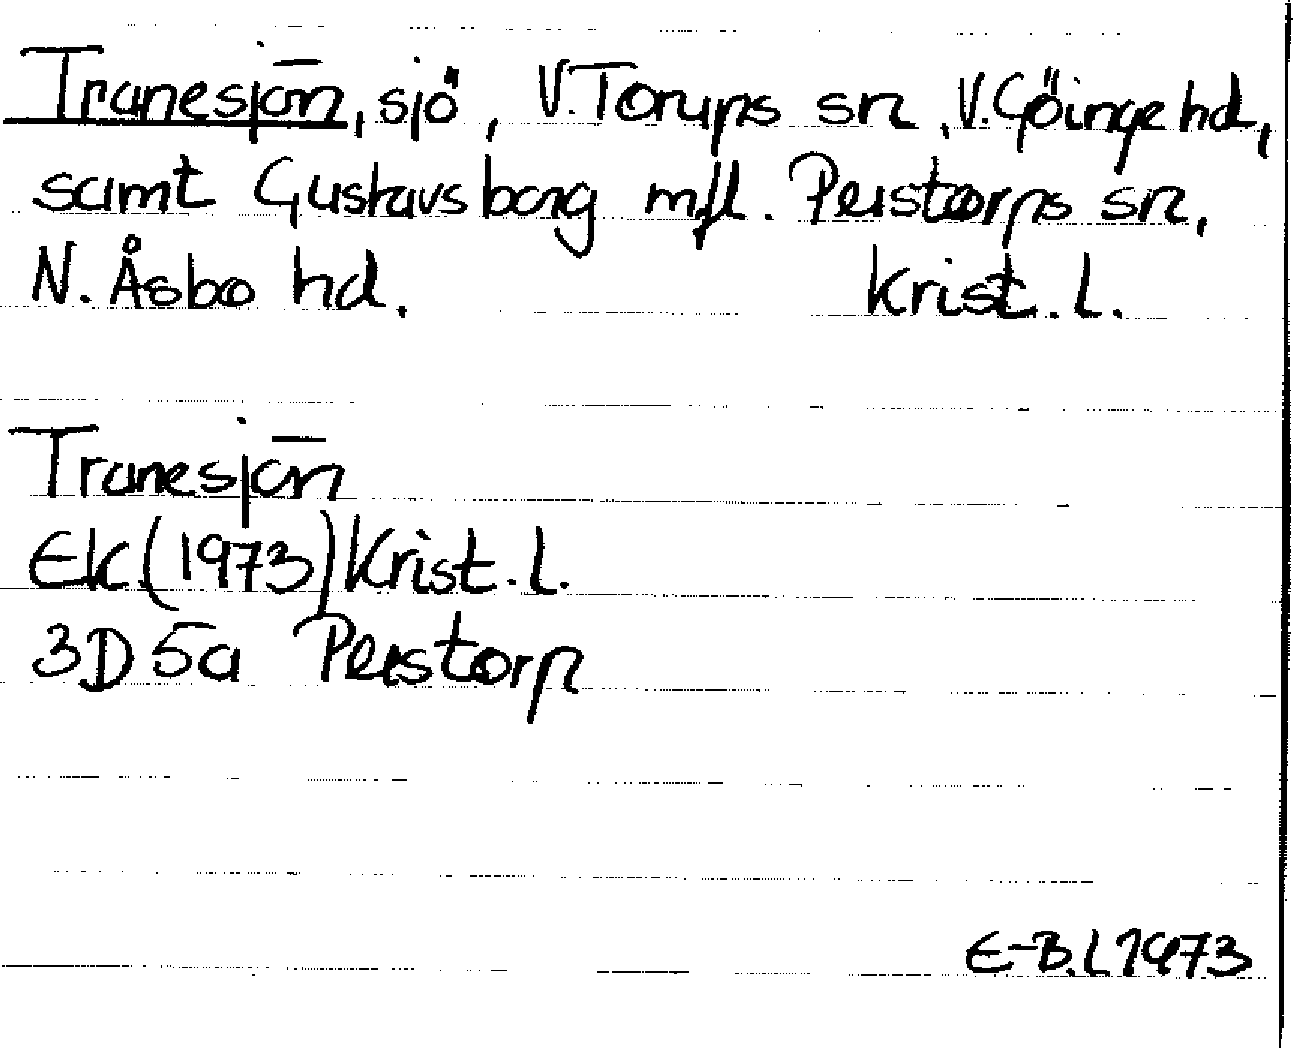 Tranesjön, sjö, V. Torups sn, V. Göinge hd,
samt Gustavsborg mfl. Perstorps sn,
N. Åsbo hd. Krist. l.
Tranesjön
Ek. (1973) Krist. l.
3D 5a Perstorp
E-B.L 1973